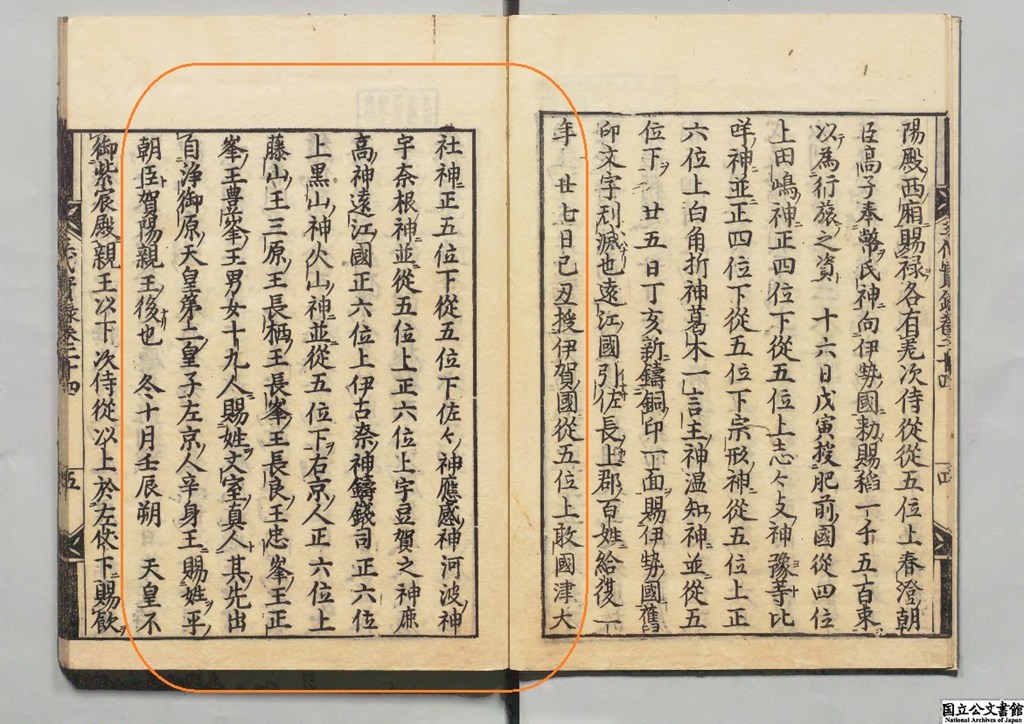 陽殿西廂賜禄各有差次侍從從五位上春澄朝
臣高子奉幣氏神向伊勢國勅賜稻一千五百束
以為行旅之資 十六日戊寅授肥前國從四位
上田嶋神正四位下從五位上志々攴神豫等比
咩神並正四位下從五位下宗形神從五位上正
六位上白角折神葛木一言主神温知神並從五
位下 廿五日丁亥新鑄銅印一面賜伊勢國舊
印文字刓滅也遠江國引佐長上郡百姓給復一
年 廿七日己丑授伊賀國從五位上敢國津大
社神正五位下從五位下佐々神應感神河波神
宇奈根神並從五位上正六位上宇豆賀之神
高神遠江國正六位上伊古奈神鑄錢司正六位
上黒山神火山神並從五位下右京人正六位上
藤山王三原王長栖王長峯王長良王忠峯王正
峯王豊峯王男女十九人賜姓文室真人其先出
自浄御原天皇第二皇子左京人辛身王賜姓平
朝臣賀陽親王後也 冬十月壬辰朔 天皇不
御紫宸殿親王以下次侍從以上於左仗下賜飲
三代實錄卷三十四 四
三代實錄卷三十四 五
国立公文書館
National Archives of Japan